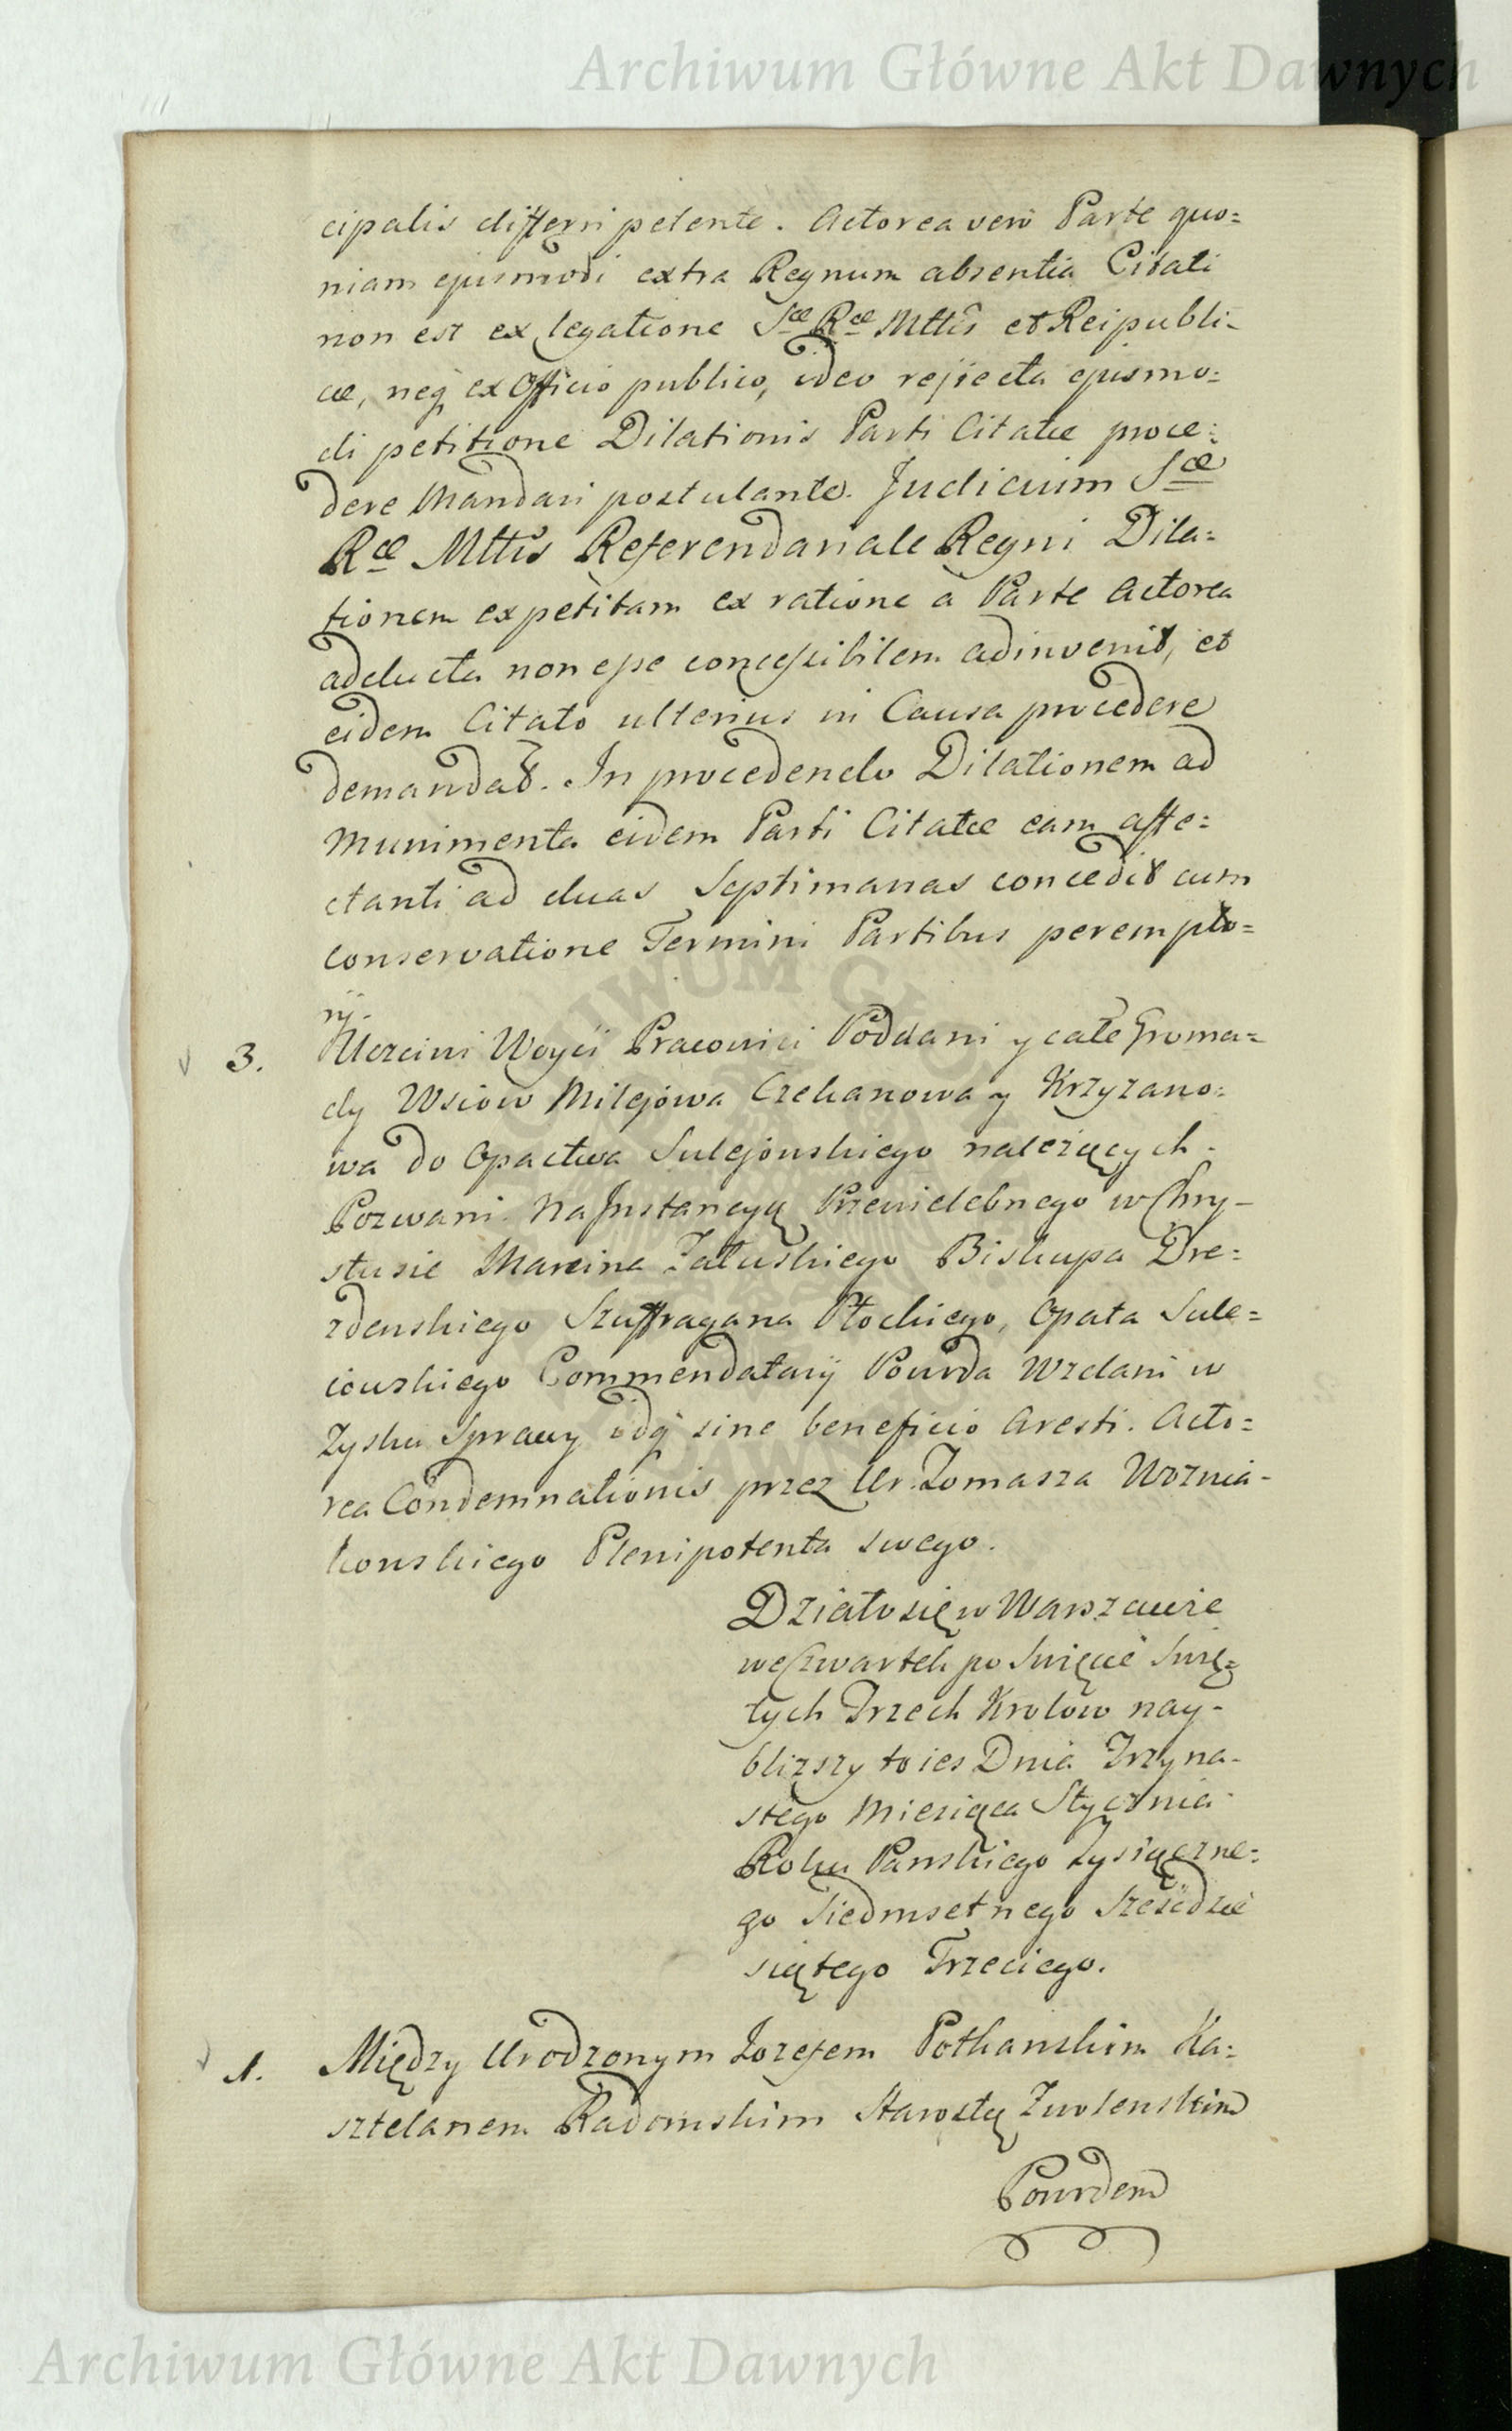 Archiwum Główne Akt Dawnych
cipalis differri petente. Actorea vero Parte quo=
niam ejusmodi extra Regnum absentia Citati
non est ex legatione Sæ Ræ Mttis et Reipubli=
cæ, neq ex Officio publico, ideo rejiecta ejusmo=
di petitione Dilationis Parti Citatæ proce=
dere Mandari postulante. Judicium Sæ
Ræ Mttis Referendariale Regni Dila=
tionem expetitam ex ratione a Parte Actorea
adducta non esse concessibilem adinvenit, et
eidem Citato ulterius in Causa procedere
demandat. In procedendo Dilationem ad
Munimenta eidem Parti Citatæ eam affe=
ctanti ad duas Septimanas concedit cum
conservatione Termini Partibus perempto=
rij.
3. Uczciwi Woyci Pracowici Poddani y całe Groma=
dy Wsiow Milejowa Czekanowa y Krzyzano=
wa do Opactwa Sulejowskiego nalezących.
Pozwani. Na Instancyą Przewielebnego w Chry=
stusie Marcina Załuskiego Biskupa Dre=
zdenskiego Szuffragana Płockiego, Opata Sule=
iowskiego Commendatarij Powoda Wzdani w
Zysku Sprawy idq sine beneficio Aresti. Acto=
rea Condemnationis przez Ur. Tomasza Woznia=
kowskiego Plenipotenta swego.
Działo się w Warszawie
we Czwartek po Swięcie Swię=
tych Trzech Krolow nay=
blizszy to ies Dnia Trzyna=
stego Miesiąca Stycznia
Roku Panskiego Tysiączne=
go Siedmsetnego Szescdzie
siątego Trzeciego.
1. Między Urodzonym Jozefem Potkanskim Ka=
sztelanem Radomskim Starostą Zwolenskim
Powodem
Archiwum Główne Akt Dawnych